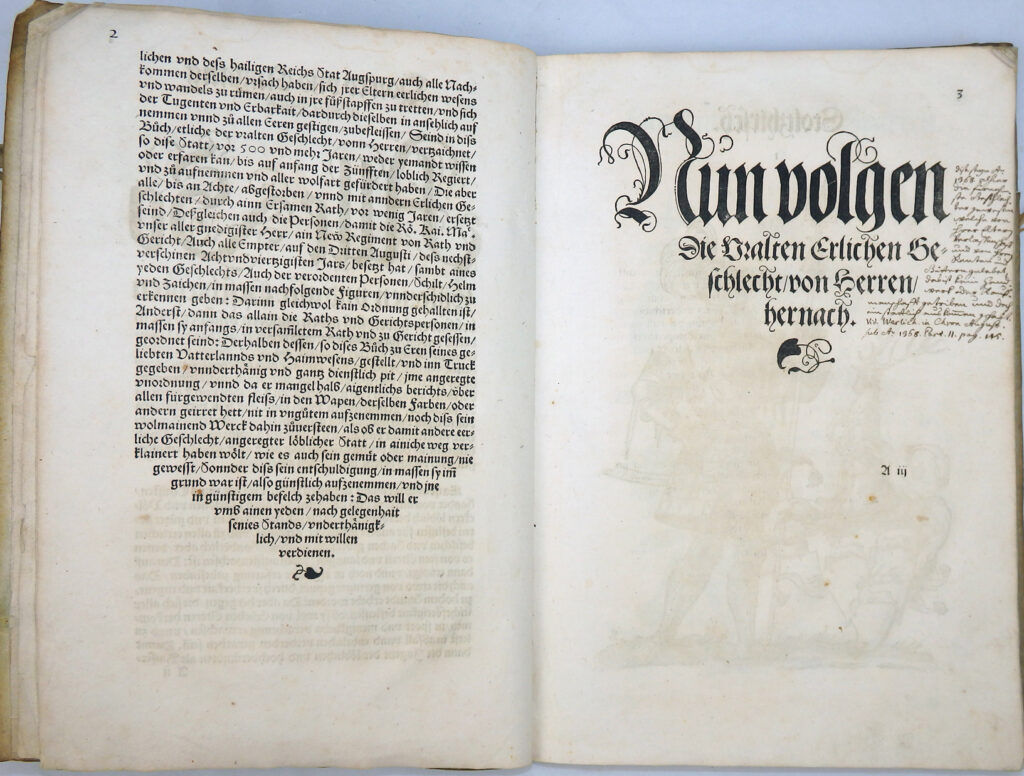 2
lichen vnd dess hailigen Reichs Stat Augspurg/auch alle Nach-
kommen derselben/vrsach haben/sich jrer Eltern eerlichen wesens
vnd wandels zu rümen/auch in jre fůßstapffen zu tretten/vnd sich
der Tugenten vnd Erbarkait/dardurch dieselben in ansehlich auf
nemmen vnnd zů allen Eeren gestigen/zubefleissen/Seind in diss
Bůch/etliche der vralten Geschlecht/vonn Herren/vertzaichnet/
so dise Statt/vor 500 vnd mehr Jaren/weder yemandt wissen
oder erfaren kan/bis auf anfang der Zünfften/loblich Regiert/
vnd zů aufnemmen vnd aller wolfart gefürdert haben/Die aber
alle/bis an Achte/abgestorben/vnnd mit anndern Erlichen Ge-
schlechten/durch ainn Ersamen Rath/vor wenig Jaren/ersetzt
seind/Dessgleichen auch die Personen/damit die Rö. Kai. Ma.
vnser aller gnedigister Herr/ain New Regiment von Rath vnd
Gericht/Auch alle Empter/auf den Dritten Augusti/des nechst-
verschinen Achtvndviertzigisten Jars/besetzt hat/sambt aines
yeden Geschlechts/Auch der verordenten Personen/Schilt/Helm
vnd Zaichen/in massen nachfolgende Figuren/vnnderschidlich zu
erkennen geben: Darinn gleichwol kain Ordnung gehallten ist/
Anderst/dann das allain die Raths vnd Gerichtspersonen/in
massen sy anfangs/in versamletem Rath vnd zu Gericht gesessen/
geordnet seind: Derhalben dessen/so dises Bůch zu Eren seines ge-
liebten Vatterlannds vnd Haimwesens/gestellt/vnd inn Truck
gegeben/vnnderthänig vnd gantz dienstlich pit/jme angeregte
vnordnung/vnnd da er mangel halb/aigentlichs berichts/über
allen fürgewendten fleiss/in den Wapen/derselben Farben/oder
andern geirret hett/nit in vngůtem aufzenemmen/noch diss sein
wolmainend Werck dahin zůuersteen/als ob er damit andere eer-
liche Geschlecht/angeregter löblicher Statt/in ainiche weg ver-
klainert haben wölt/wie es auch sein gemüt oder mainung/nie
gewesst/Sonnder diss sein entschuldigung/in massen sy im
grund war ist/also günstlich aufzenemmen/vnd jne
in günstigem befelch zehaben: Das will er
vmb ainen yeden/nach gelegenhait
seines Stands/vnderthänigk-
lich/vnd mit willen
verdienen.
3
Nun volgen
Die Vralten Erlichen Ge-
schlecht/von Herren/
hernach.
A iij